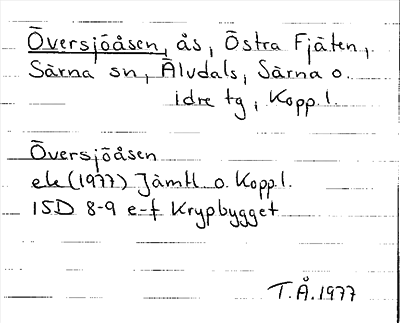 Översjöåsen, ås, Östra Fjäten,
Särna sn, Älvdals, Särna o.
idre tg, Kopp. l.
Översjöåsen
ek (1977) Jämtl o. Koppl.
15D 8-9 e-f Krypbygget
T.Å.1977